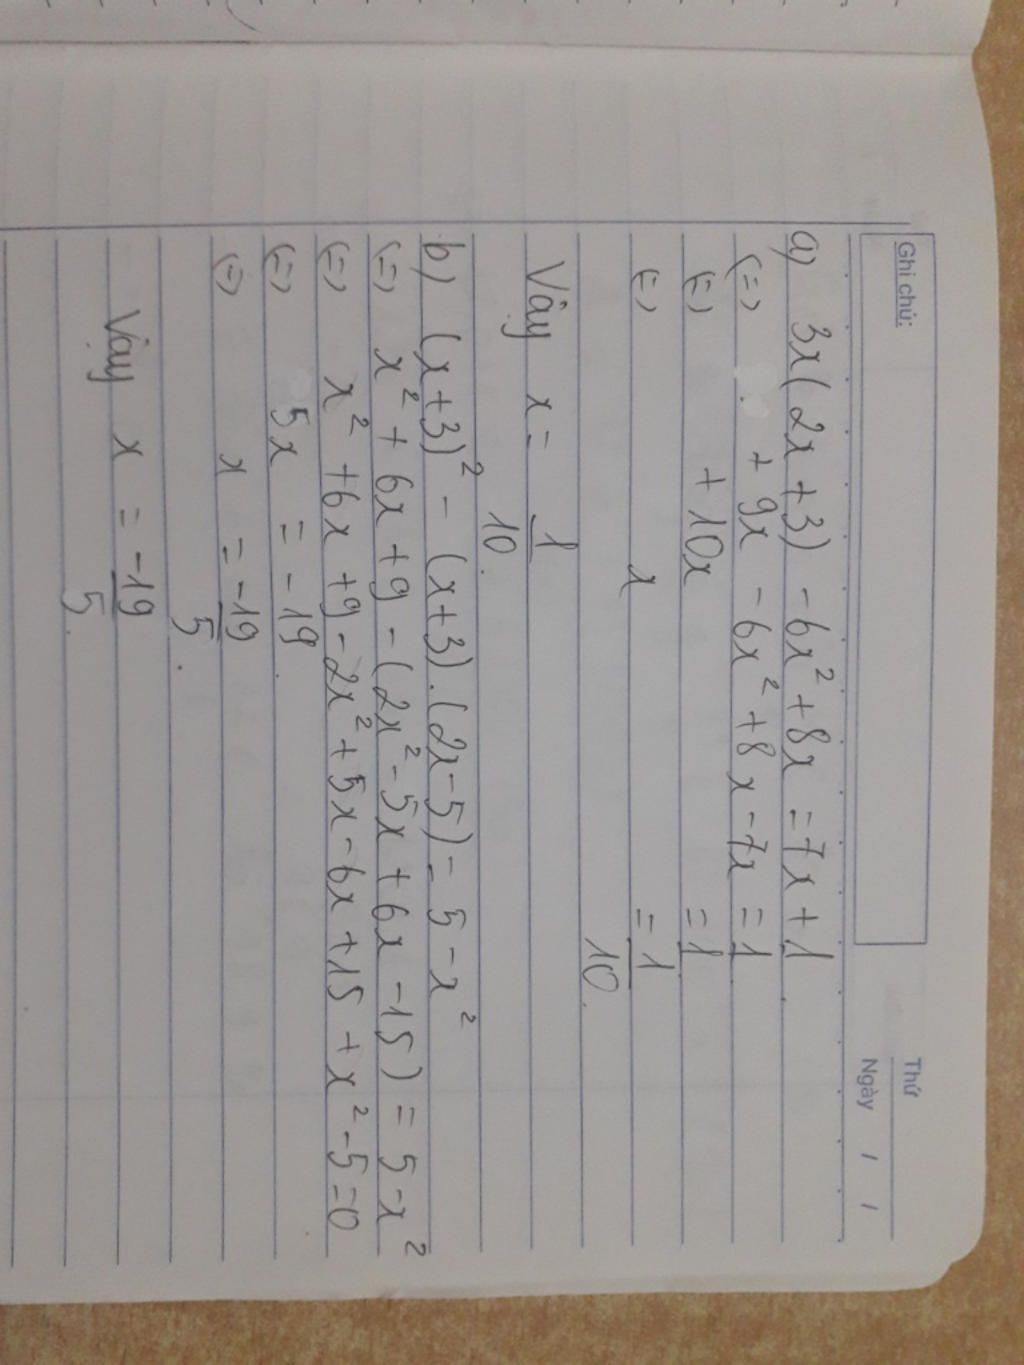 Ghi chú:
Thứ
Ngày / /
a) 3x(2x+3) - 6x² + 8x = 7x + 1
(=) . + 9x - 6x² + 8x - 7x = 1
(=) + 10x = 1
(=) x = 1/10.
Vậy x = 1/10.
b) (x+3)² - (x+3).(2x-5) = 5 - x²
(=) x² + 6x + 9 - (2x² - 5x + 6x - 15) = 5 - x²
(=) x² + 6x + 9 - 2x² + 5x - 6x + 15 + x² - 5 = 0
(=) 5x = -19.
(=) x = -19/5.
Vậy x = -19/5.